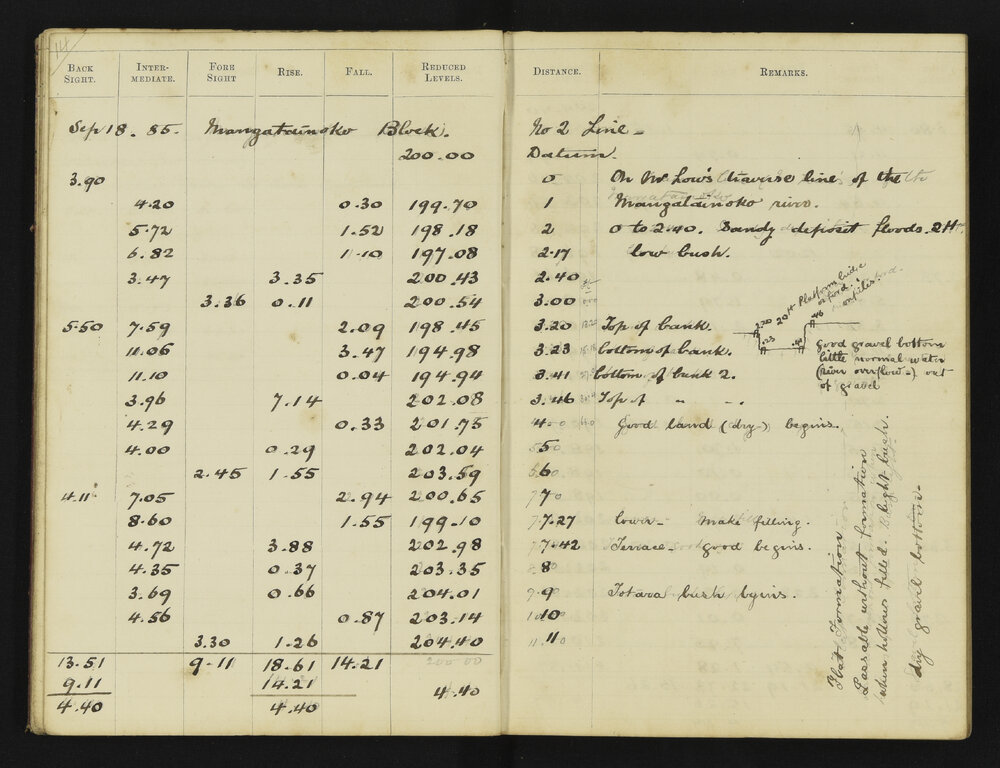 14
BACK SIGHT. INTER-MEDIATE. FORE SIGHT RISE. FALL. REDUCED LEVELS. DISTANCE. REMARKS.
Sep 18. 85. Mangatainoko Block. No 2 Line -
200.00 Datum.
3.90 0 On Mr Low's traverse line of the
4.20 0.30 199.70 1 Mangatainoko river.
5.72 1.52 198.18 2 0 to 2.40. Sandy deposit floods. 2ft.
6.82 1.10 197.08 2.17 low bush.
3.47 3.35 200.43 2.40
3.36 0.11 200.54 3.00
5.50 7.59 2.09 198.45 3.20 Top of bank.
11.06 3.47 194.98 3.23 bottom of bank.
11.10 0.04 194.94 3.41 bottom of bank 2.
3.96 7.14 202.08 3.46 Top of " "
4.29 0.33 201.75 4 Good land (dry-) begins.
4.00 0.29 202.04 5
2.45 1.55 203.59 6
4.11 7.05 2.94 200.65 7
8.60 1.55 199.10 7.27 lower - Make filling.
4.72 3.88 202.98 7.42 Terrace - good begins.
4.35 0.37 203.35 8
3.69 0.66 204.01 9 Totara bush begins.
4.56 0.87 203.14 10
3.30 1.26 204.40 11
13.51 9.11 18.61 14.21 200.00
9.11 14.21 4.40
4.40 4.40
20ft Platform bridge
or ford.
3.20 .23 .41 .46
Good gravel bottom
little normal water
(river overflow-) out
of gravel
Flat Formation
Passable without formation
when hollows filled. Light bush.
dry gravel bottom-